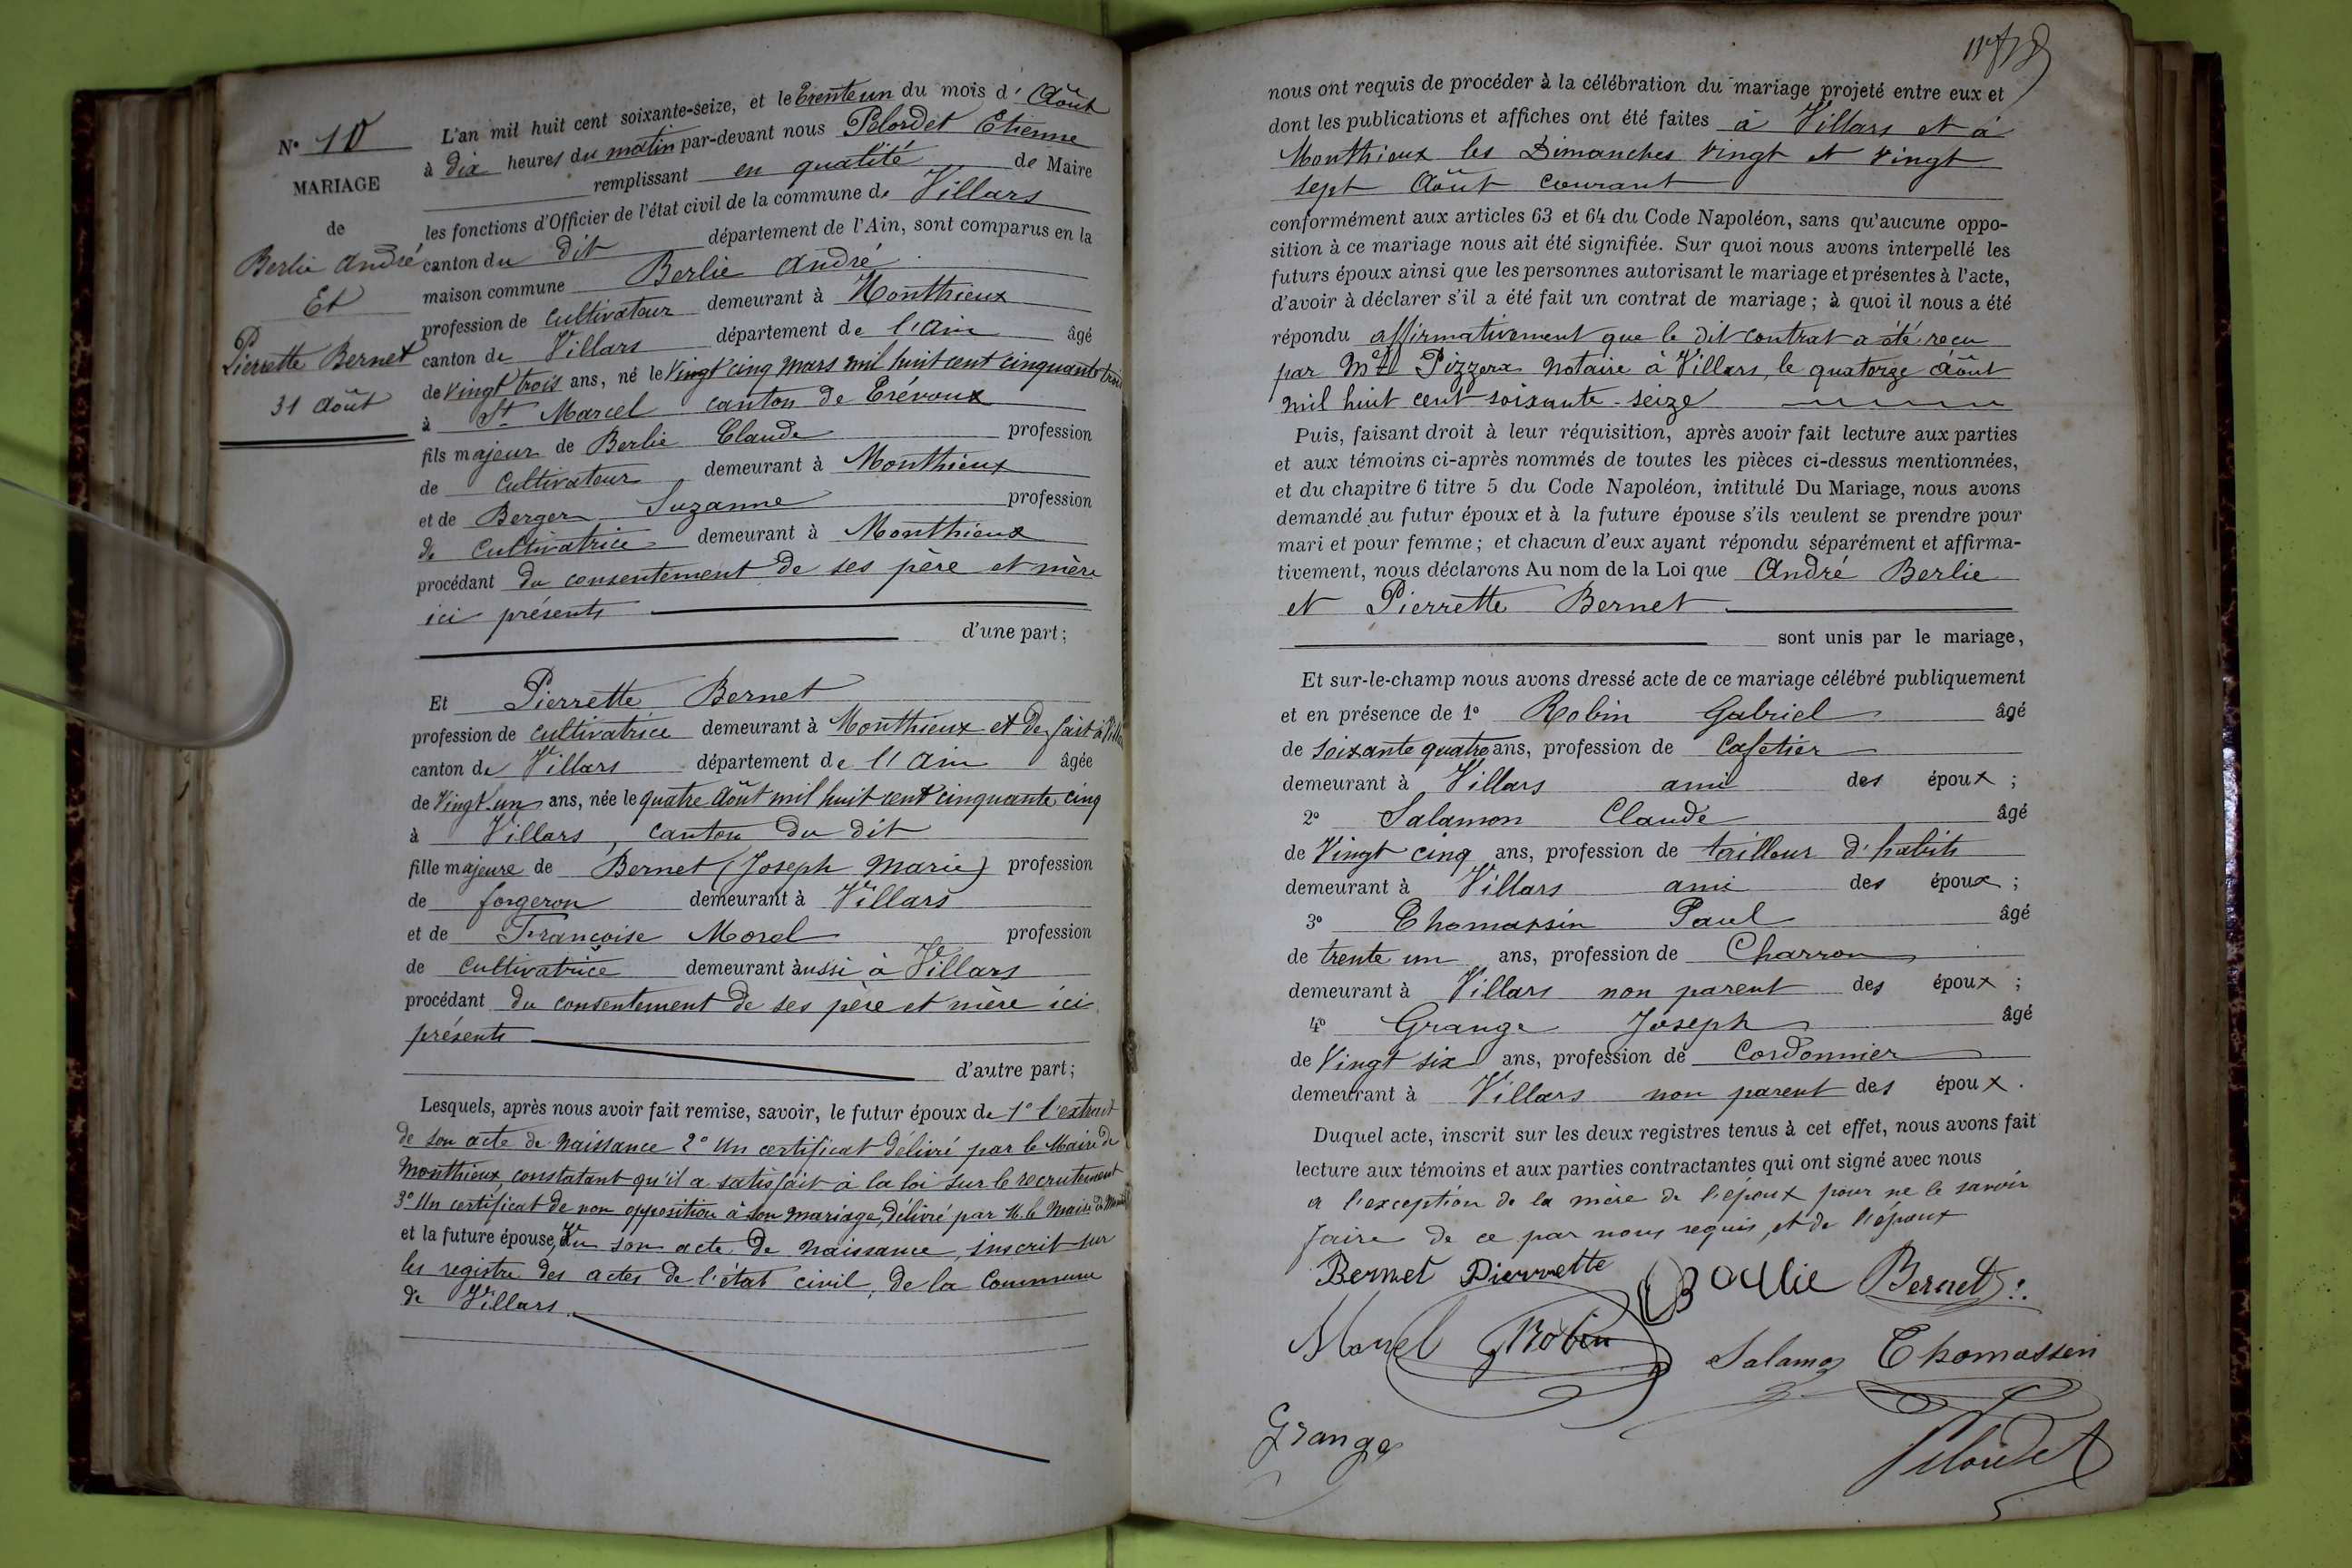 N° 10
MARIAGE
de
Berlie André
Et
Pierrette Bernet
31 Août
L'an mil huit cent soixante-seize, et le Trente un du mois d' Août
à dix heures du matin par-devant nous Pelordet Etienne
remplissant en qualité de Maire
les fonctions d'Officier de l'état civil de la commune de Villars
canton du dit département de l'Ain, sont comparus en la
maison commune Berlie André
profession de cultivateur demeurant à Monthieux
canton de Villars département de l'Ain âgé
de Vingt trois ans, né le Vingt cinq mars mil huit cent cinquante trois
à St Marcel canton de Trévoux
fils majeur de Berlie Claude profession
de Cultivateur demeurant à Monthieux
et de Berger Suzanne profession
de Cultivatrice demeurant à Monthieux
procédant du consentement de ses père et mère
ici présents
d'une part;
Et Pierrette Bernet
profession de cultivatrice demeurant à Monthieux et de fait à Villars
canton de Villars département de l'Ain âgée
de Vingt un ans, née le quatre Août mil huit cent cinquante cinq
à Villars, canton du dit
fille majeure de Bernet (Joseph Marie) profession
de forgeron demeurant à Villars
et de Françoise Morel profession
de Cultivatrice demeurant àussi à Villars
procédant du consentement de ses père et mère ici
présents
d'autre part;
Lesquels, après nous avoir fait remise, savoir, le futur époux de 1° l'extrait
de son acte de Naissance 2° Un certificat délivré par le Maire de
Monthieux, constatant qu'il a satisfait à la loi sur le recrutement
3° Un certificat de non opposition à son mariage, délivré par M. le Maire de
et la future épouse, Vu son acte de naissance, inscrit sur
les registre des actes de l'état civil, de la Commune
de Villars.
nous ont requis de procéder à la célébration du mariage projeté entre eux et
dont les publications et affiches ont été faites à Villars et à
Monthieux les Dimanches vingt et vingt
sept Août courant
conformément aux articles 63 et 64 du Code Napoléon, sans qu'aucune oppo-
sition à ce mariage nous ait été signifiée. Sur quoi nous avons interpellé les
futurs époux ainsi que les personnes autorisant le mariage et présentes à l'acte,
d'avoir à déclarer s'il a été fait un contrat de mariage; à quoi il nous a été
répondu affirmativement que le dit contrat a été reçu
par Me Pizzera Notaire à Villars, le quatorze Août
mil huit cent soixante-seize
Puis, faisant droit à leur réquisition, après avoir fait lecture aux parties
et aux témoins ci-après nommés de toutes les pièces ci-dessus mentionnées,
et du chapitre 6 titre 5 du Code Napoléon, intitulé Du Mariage, nous avons
demandé au futur époux et à la future épouse s'ils veulent se prendre pour
mari et pour femme; et chacun d'eux ayant répondu séparément et affirma-
tivement, nous déclarons Au nom de la Loi que André Berlie
et Pierrette Bernet
sont unis par le mariage,
Et sur-le-champ nous avons dressé acte de ce mariage célébré publiquement
et en présence de 1° Robin Gabriel âgé
de soixante quatre ans, profession de Cafetier
demeurant à Villars ami des époux;
2° Salamon Claude âgé
de Vingt cinq ans, profession de tailleur d'habits
demeurant à Villars ami des époux;
3° Thomassin Paul âgé
de trente un ans, profession de Charron
demeurant à Villars non parent des époux;
4° Grange Joseph âgé
de Vingt six ans, profession de Cordonnier
demeurant à Villars non parent des époux.
Duquel acte, inscrit sur les deux registres tenus à cet effet, nous avons fait
lecture aux témoins et aux parties contractantes qui ont signé avec nous
à l'exception de la mère de l'époux pour ne le savoir
faire de ce par nous requis, et de l'époux
Bernet Pierrette Berlie Bernet
Morel Robin Salamon Thomassin
Grange
Pelordet